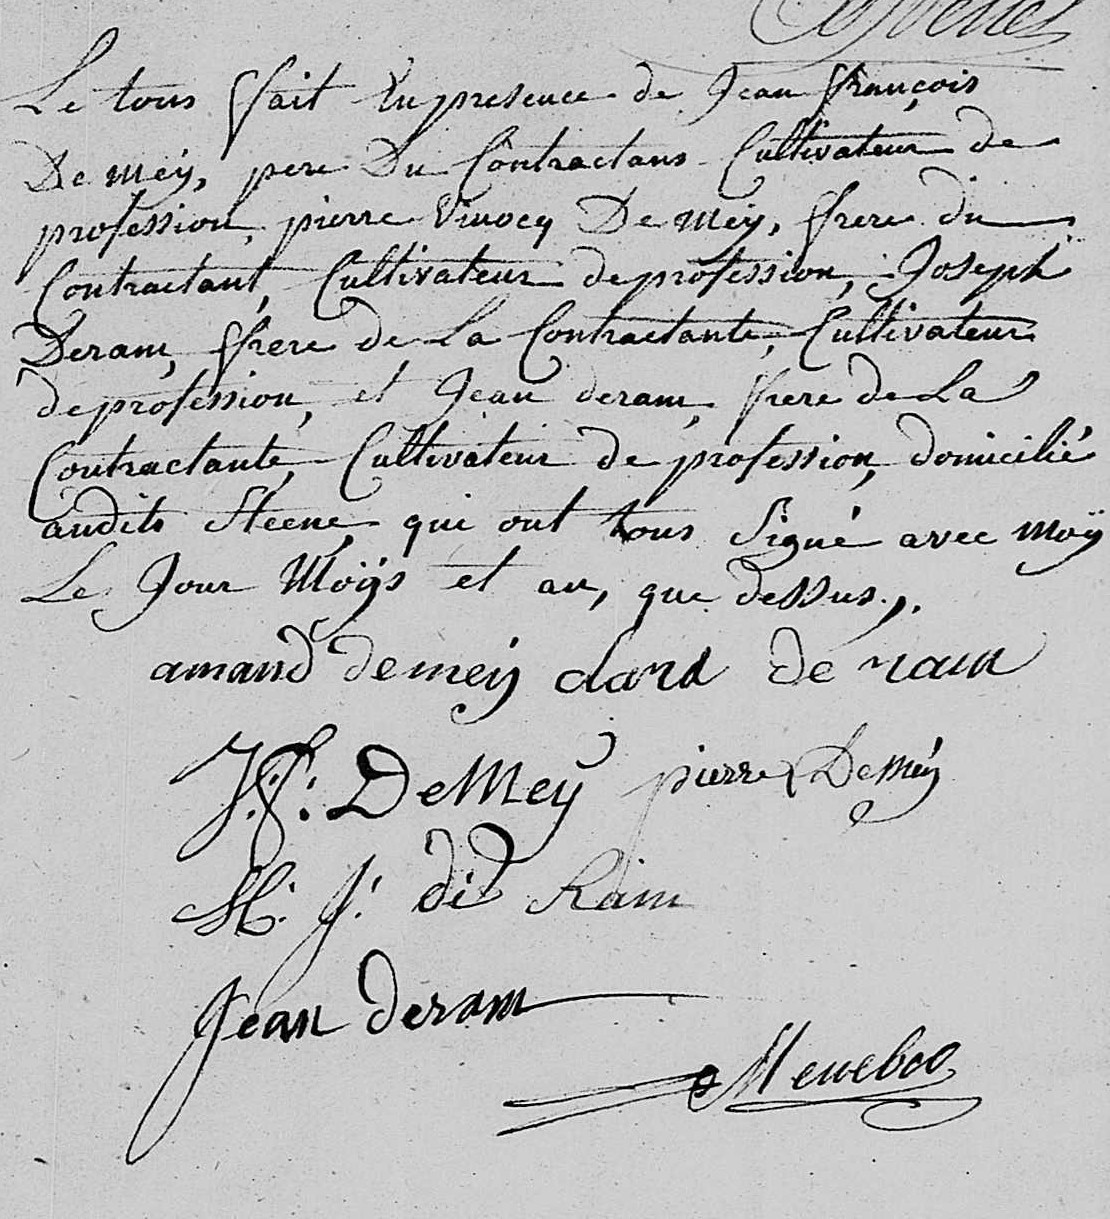 Le tous fait En presence de Jean françois
De Méÿ, pere Du Contractans Cultivateur de
profession, pierre Vinocq De Meÿ, frere du
Contractant, Cultivateur de profession, Joseph
Deram, frere de La Contractante, Cultivateur
de profession, et Jean deram, frere de La
Contractante, Cultivateur de profession, domicilié
audits Steene, qui ont tous Signé avec moÿ
Le Jour Moÿs et an, que dessus.,.
amand demeij clara de ram
J: f: DeMeÿ pierre DeMéÿ
J: de Ram
Jean deram